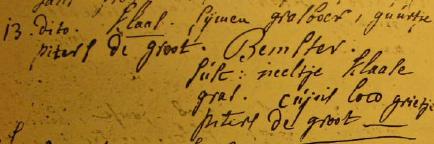 13. dito. Klaas. Sijmen grotboer, guurtje
piters de groot. Bemster.
suk: neeltje Klaase
gras. cujus loco grietje
piters de groot